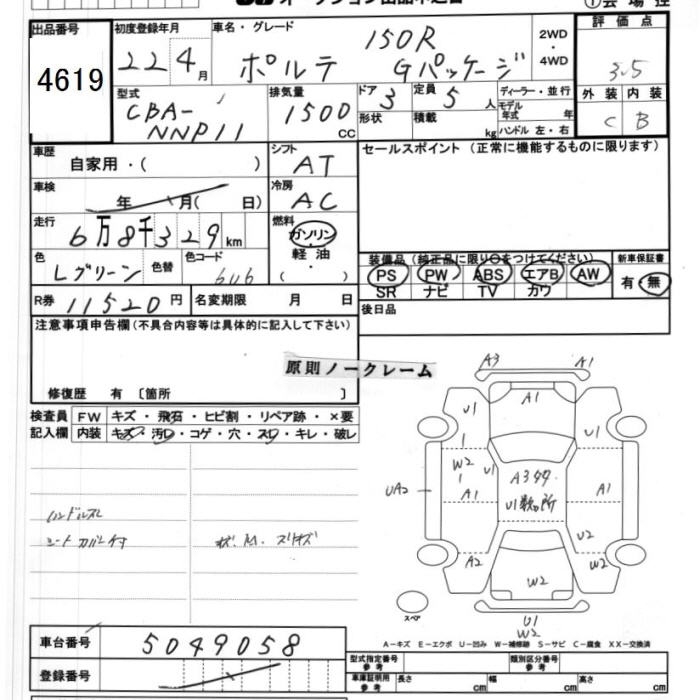 出品番号
4619
初度登録年月
22 4 月
車名・グレード
150R
ポルテ Gパッケージ
2WD
・
4WD
評価点
3.5
外装 内装
C B
型式
CBA-
NNP11
排気量
1500 CC
ドア 3
形状
定員 5 人
積載 kg
ディーラー・並行
モデル年式 年
ハンドル 左・右
車歴
自家用・( )
シフト
AT
車検
年 月( 日)
冷房
AC
走行
6万8千329km
燃料
ガソリン
軽油
・( )
色
Lグリーン
色替
色コード
6U6
R券 11520円
名変期限 月 日
セールスポイント(正常に機能するものに限ります)
装備品(純正品に限り○をつけてください)
PS PW ABS エアB AW
SR ナビ TV カワ
新車保証書
有・無
後日品
注意事項申告欄(不具合内容等は具体的に記入して下さい)
原則ノークレーム
修復歴 有 〔箇所 〕
検査員
記入欄
FW キズ・飛石・ヒビ割・リペア跡・×要
内装 キズ・汚れ・コゲ・穴・スレ・キレ・破レ
ハンドルスレ
シートカバー付
キズ
スリキズ
A3 A1
A1
U1 U1
W2 U1
A1
A3
U1数ヶ所
A1
UA2
U2
A2 W2
W2
スペア
U1
W2
A-キズ E-エクボ U-凹み W-補修跡 S-サビ C-腐食 XX-交換済
車台番号 5049058
登録番号
型式指定番号
参考
類別区分番号
参考
車庫証明用
参考
長さ cm 幅 cm 高さ cm